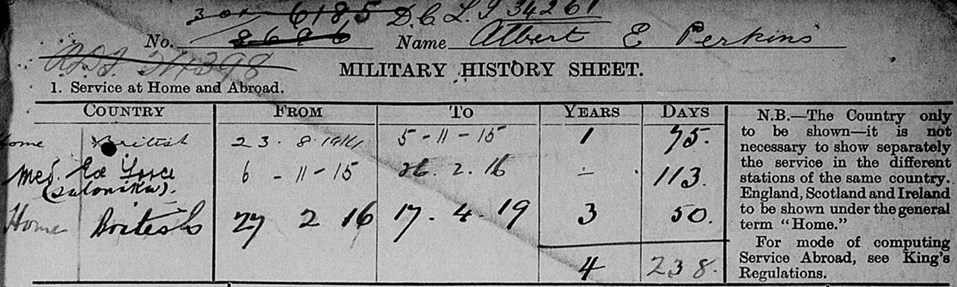 6185 D.C.L.I 34261
No. 8696 Name Albert E Perkins
34398
MILITARY HISTORY SHEET.
1. Service at Home and Abroad.
COUNTRY FROM TO YEARS DAYS
Home British 23. 8. 1914 5-11-15 1 75.
Med. Ex Force (Salonika). 6 -11-15 26. 2. 16 - 113.
Home British 27 2 16 17. 4. 19 3 50.
4 238.
N.B.—The Country only
to be shown—it is not
necessary to show separately
the service in the different
stations of the same country.
England, Scotland and Ireland
to be shown under the general
term "Home."
For mode of computing
Service Abroad, see King's
Regulations.